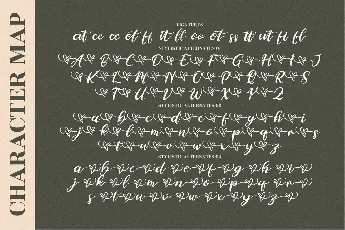 CHARACTER MAP
LIGATURES
at cc ee et ff it ll oo ot ss tt ut fi fl
STYLISTIC ALTERNATES 01
A B C D E F G H I J
K L M N O P Q R S
T U V W X Y Z
STYLISTIC ALTERNATES 03
a b c d e f g h i
j k l m n o p q r s
t u v w x y z
STYLISTIC ALTERNATES 04
a b c d e f g h i
j k l m n o p q r
s t u v w x y z